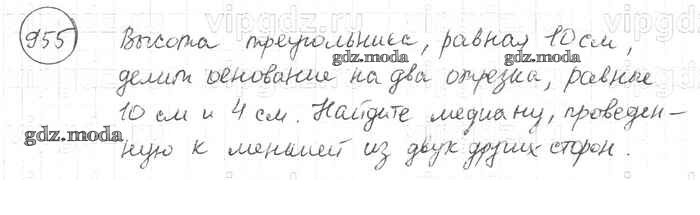 955
Высота треугольника, равная 10 см,
делит основание на два отрезка, равные
10 см и 4 см. Найдите медиану, проведен-
ную к меньшей из двух других сторон.
gdz.moda
gdz.moda
gdz.moda
gdz.moda